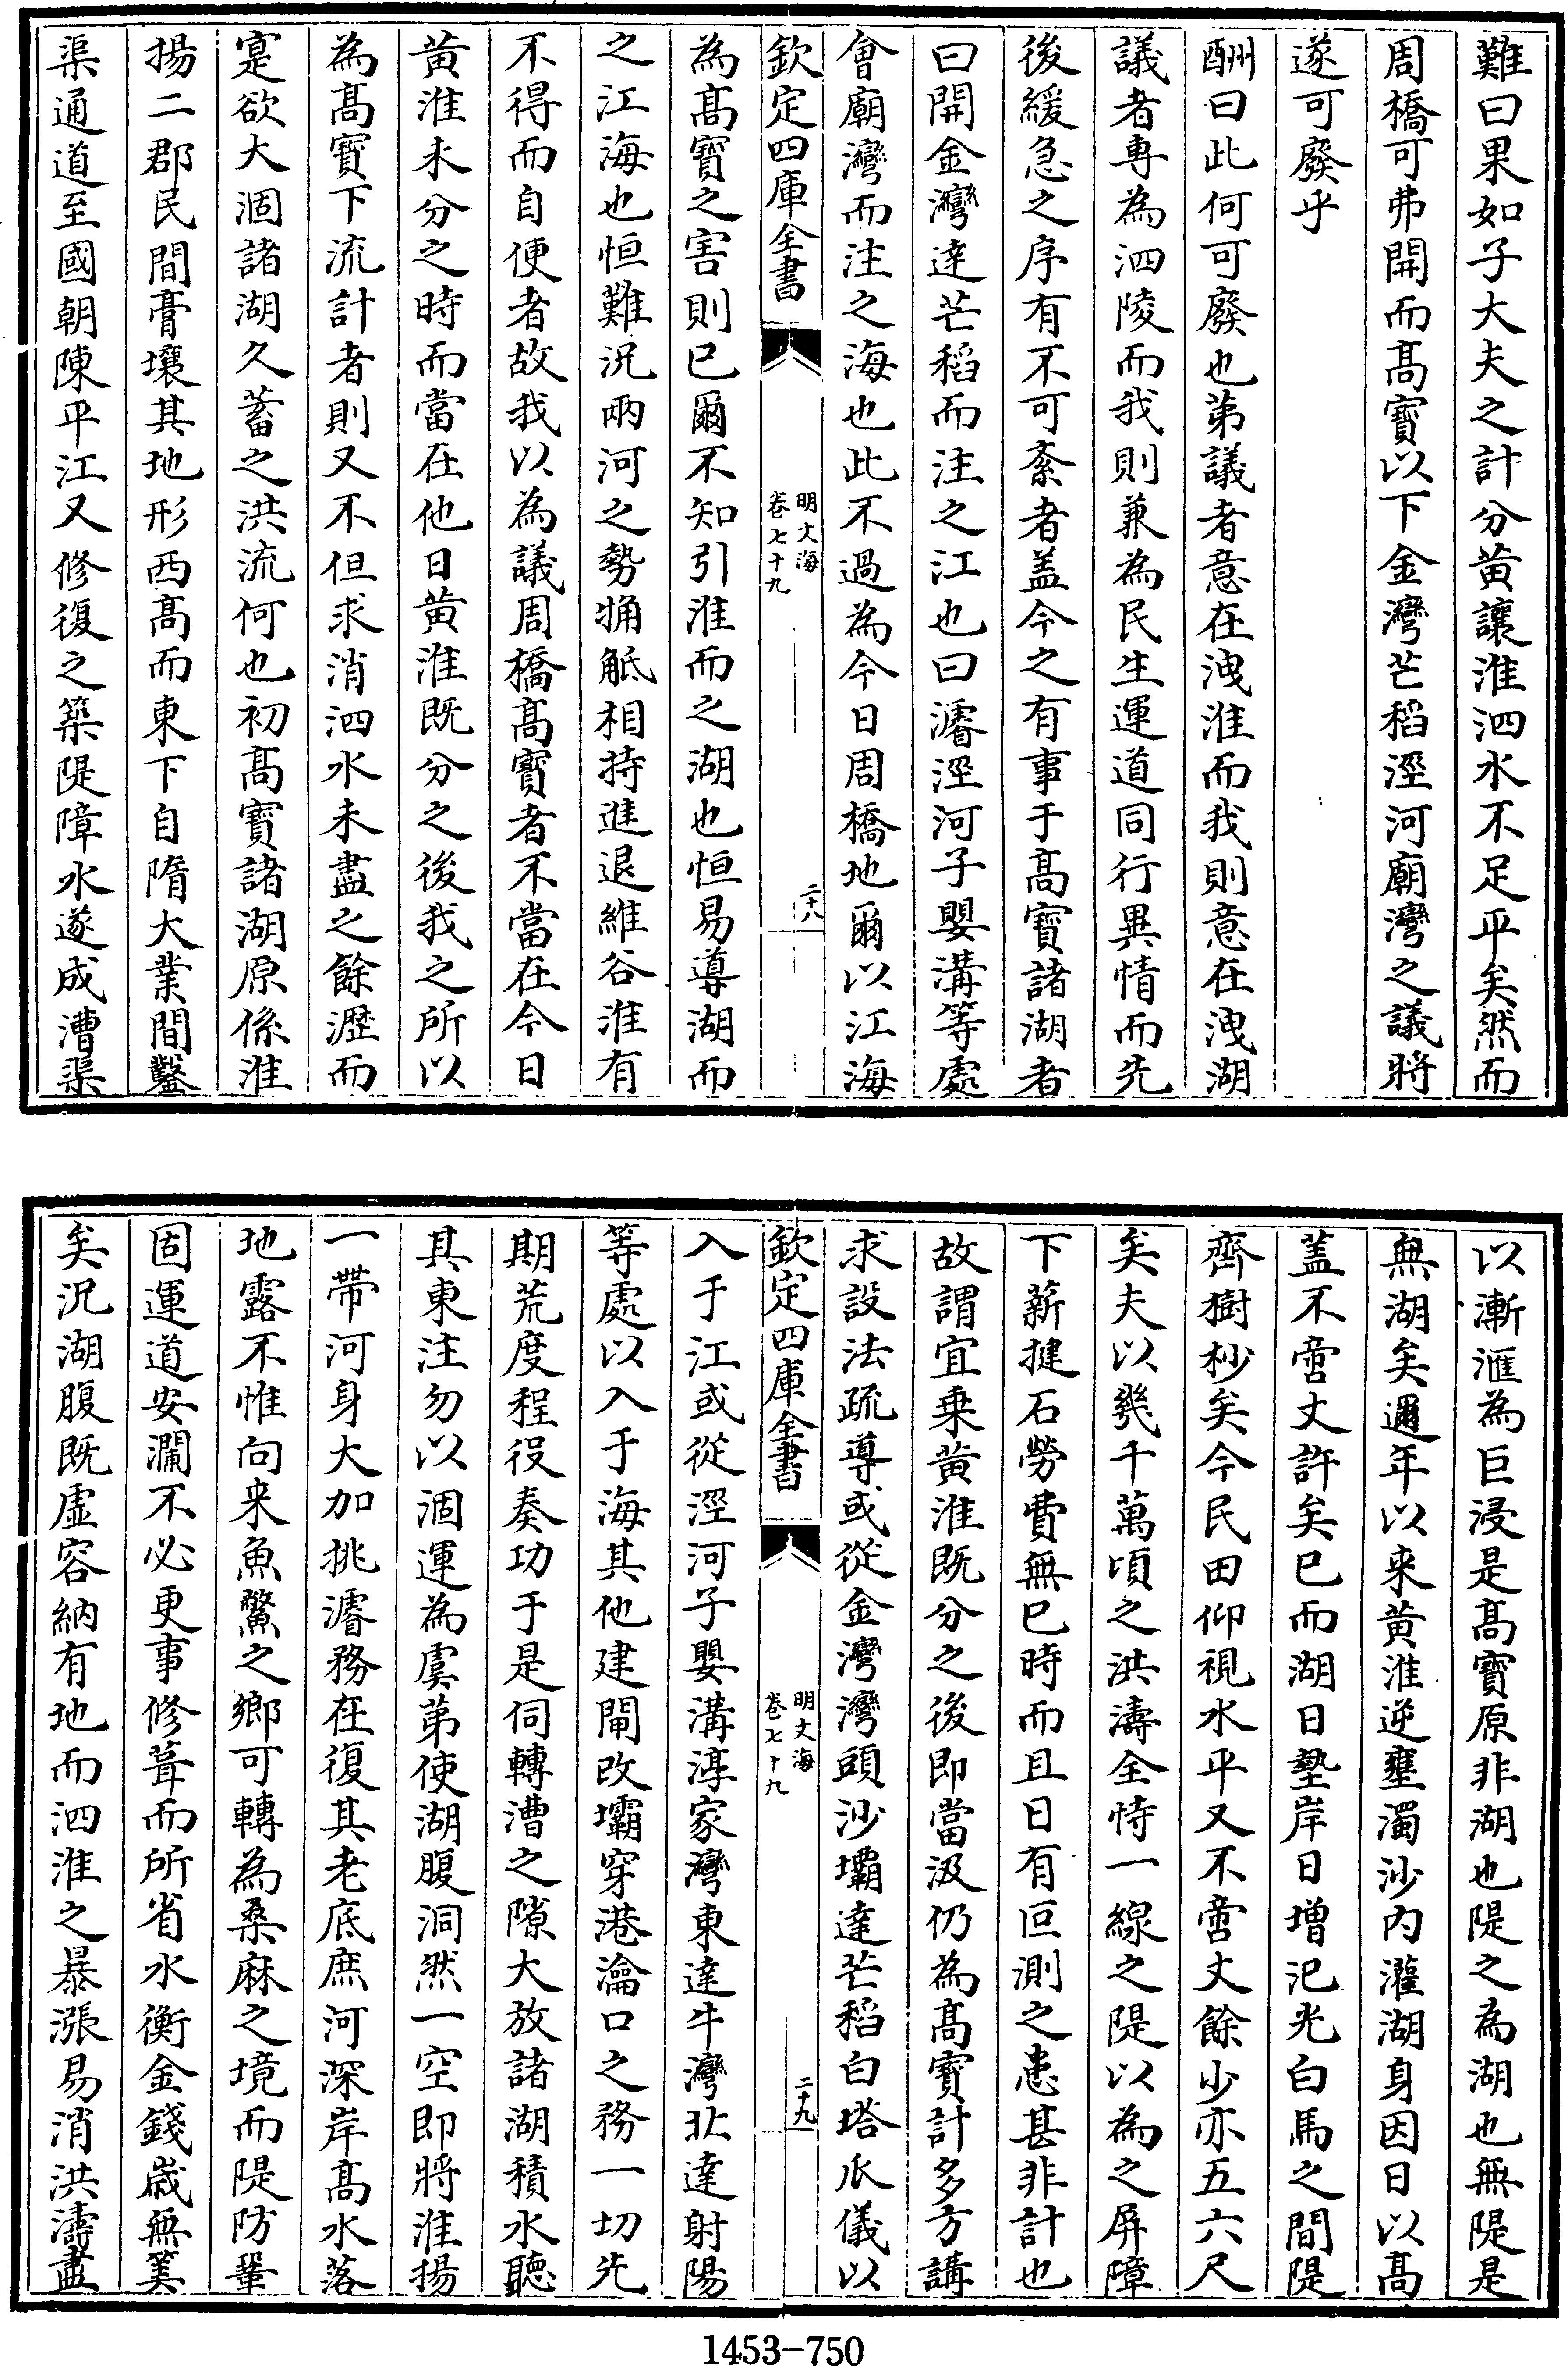 難曰果如子大夫之計分黄讓淮泗水不足平矣然而
周橋可弗開而髙寶以下金灣芒稻涇河廟灣之議將
遂可廢乎
酬曰此何可廢也第議者意在洩淮而我則意在洩湖
議者専為泗陵而我則兼為民生運道同行異情而先
後緩急之序有不可紊者盖今之有事于髙寶諸湖者
曰開金灣達芒稻而注之江也曰濬涇河子嬰溝等處
會廟灣而注之海也此不過為今日周橋地爾以江海
欽定四庫全書
明文海
卷七十九
二十八
為髙寶之害則已爾不知引淮而之湖也恒易導湖而
之江海也恒難況兩河之勢觕觝相持進退維谷淮有
不得而自便者故我以為議周橋髙寶者不當在今日
黄淮未分之時而當在他日黄淮既分之後我之所以
為髙寶下流計者則又不但求消泗水未盡之餘瀝而
寔欲大涸諸湖久蓄之洪流何也初髙寶諸湖原係淮
揚二郡民間膏壤其地形西髙而東下自隋大業間鑿
渠通道至國朝陳平江又修復之築隄障水遂成漕渠
以漸滙為巨浸是髙寶原非湖也隄之為湖也無隄是
無湖矣邇年以来黄淮逆壅濁沙内灌湖身因日以髙
盖不啻丈許矣已而湖日墊岸日增氾光白馬之間隄
齊樹杪矣今民田仰視水平又不啻丈餘少亦五六尺
矣夫以幾千萬頃之洪濤全恃一線之隄以為之屏障
下薪揵石勞費無已時而且日有叵測之患甚非計也
故謂宜乗黄淮既分之後即當汲仍為髙寶計多方講
求設法疏導或從金灣灣頭沙壩達芒稻白塔瓜儀以
欽定四庫全書
明文海
卷七十九
二十九
入于江或從涇河子嬰溝涥家灣東達牛灣北達射陽
等處以入于海其他建閘改壩穿港瀹口之務一切先
期荒度程役奏功于是伺轉漕之隙大放諸湖積水聽
其東注勿以涸運為虞第使湖腹洞然一空即將淮揚
一帶河身大加挑濬務在復其老底庶河深岸髙水落
地露不惟向来魚鱉之鄉可轉為桑麻之境而隄防鞏
固運道安瀾不必更事修葺而所省水衡金錢嵗無筭
矣況湖腹既虚容納有地而泗淮之暴漲易消洪濤盡
1453-750